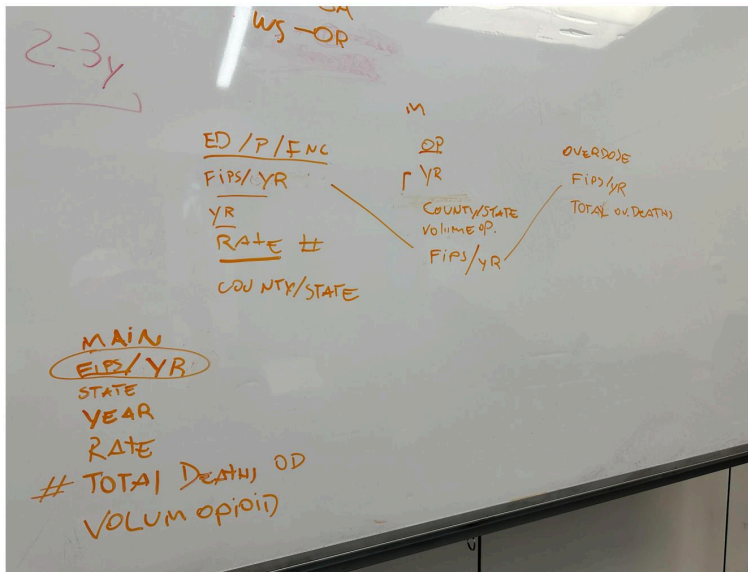 WS-OR
2-3y
M
ED/P/ENC
FiPS/YR
YR
RATE #
COUNTY/STATE
OP
YR
COUNTY/STATE
VOLUME OP.
FiPS/YR
OVERDOSE
FiPS/YR
TOTAL OV. DEATHS
MAiN
FiPS/YR
STATE
YEAR
RATE
# TOTAL DEATHS OD
VOLUM OPiOiD